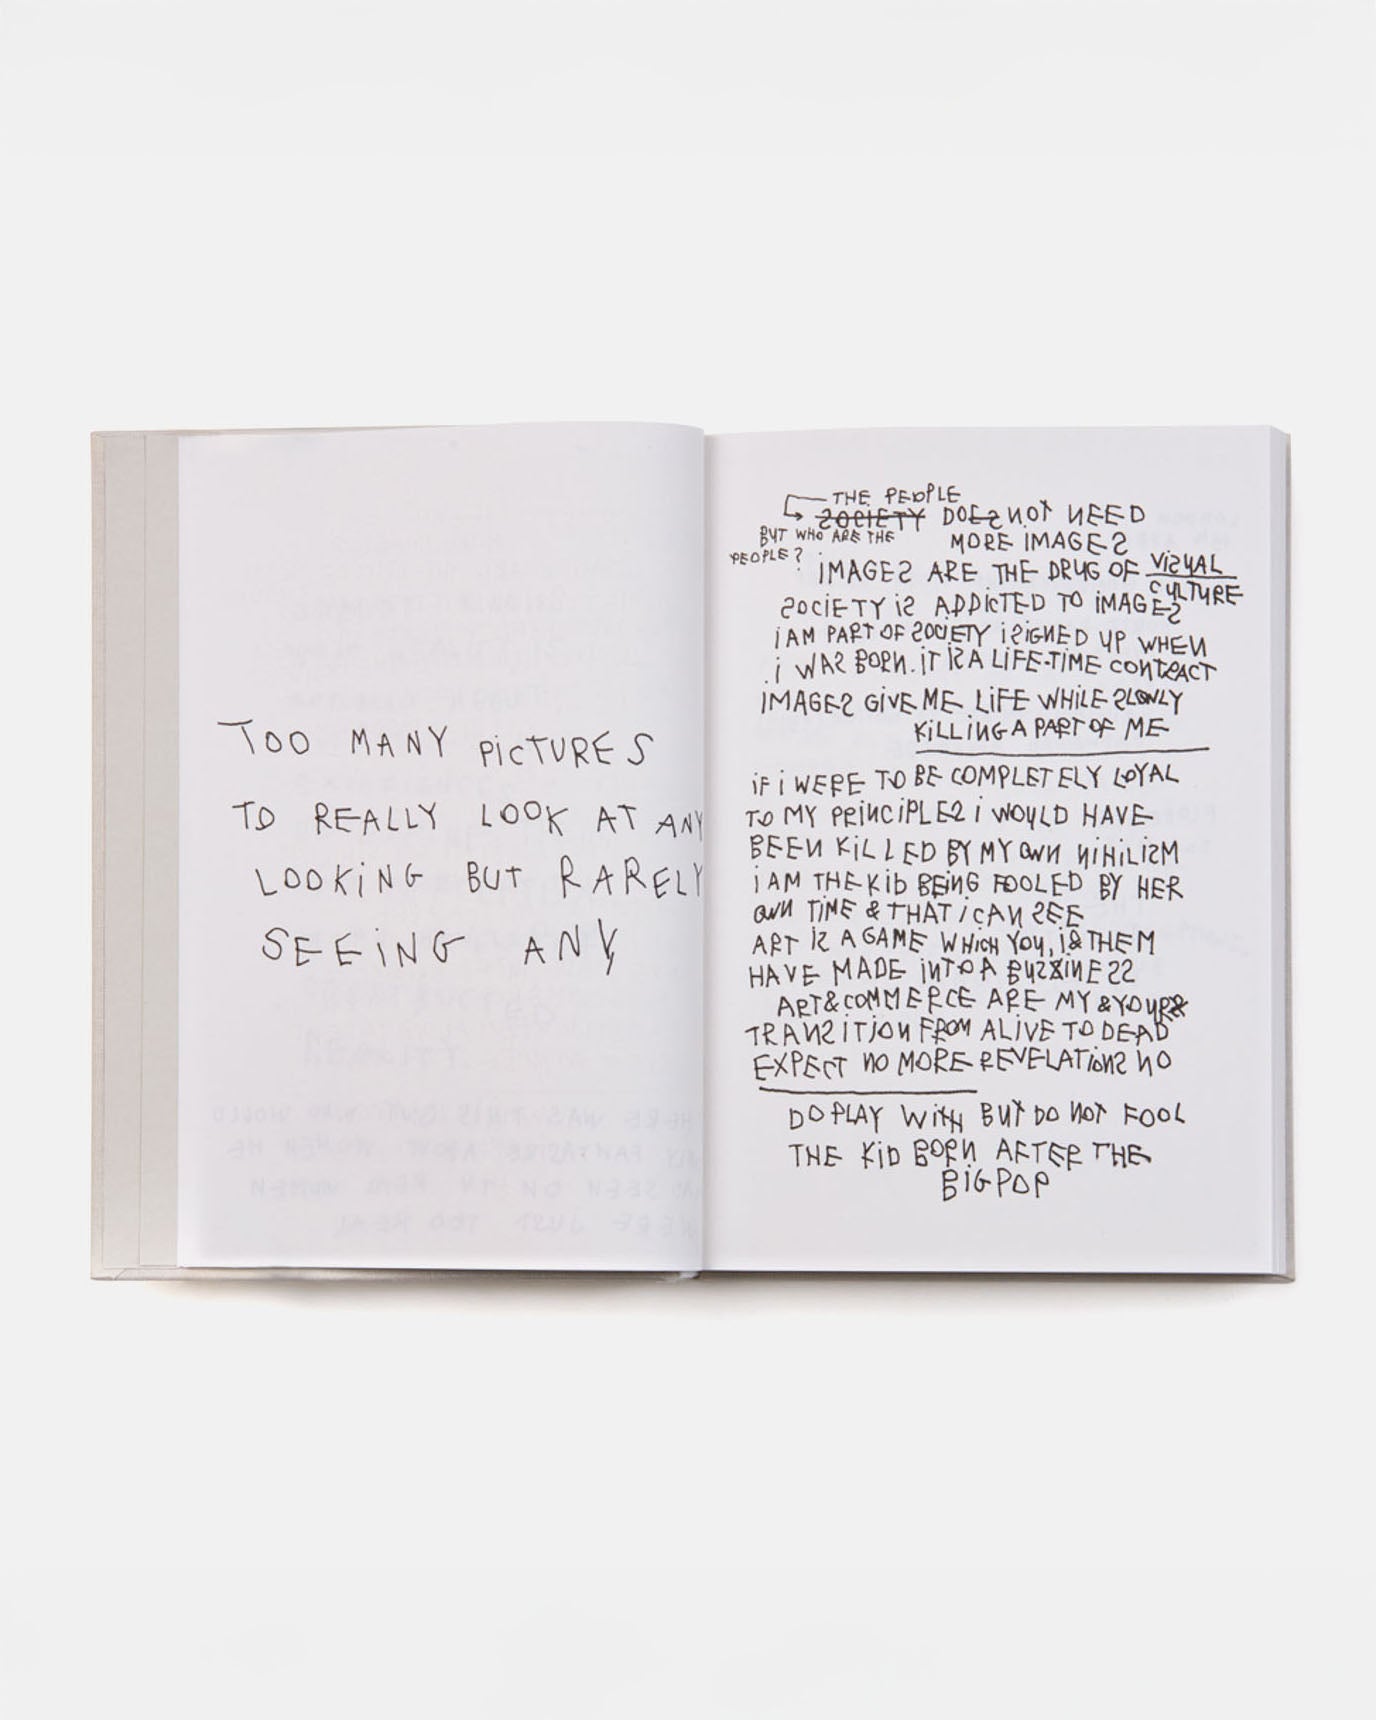 TOO MANY PiCTURES
TO REALLY LOOK AT ANY
LOOKiNG BUT RARELY
SEEiNG ANY
THE PEOPLE
SOCIETY DOES NOT NEED
BUT WHO ARE THE
MORE IMAGES
PEOPLE?
IMAGES ARE THE DRUG OF ViSUAL
CULTURE
SOCiETY iS ADDiCTED TO iMAGES
i AM PART OF SOCiETY i SiGNED UP WHEN
i WAS BORN. iT iS A LiFE-TiME CONTRACT
IMAGES GiVE ME LiFE WHiLE SLOWLY
KiLLiNG A PART OF ME
iF i WERE TO BE COMPLETELY LOYAL
TO MY PRiNCiPLES i WOULD HAVE
BEEN KiLLED BY MY OWN NiHiLiSM
i AM THE KiD BEiNG FOOLED BY HER
OWN TiME & THAT i CAN SEE
ART iS A GAME WHiCH YOU, i & THEM
HAVE MADE iNTO A BUSSiNESS
ART & COMMERCE ARE MY & YOURS
TRANSiTiON FROM ALiVE TO DEAD
EXPECT NO MORE REVELATiONS NO
DO PLAY WiTH BUT DO NOT FOOL
THE KiD BORN AFTER THE
BiG POP
HERE WAS THIS GUY WHO WOULD
FANTASISE ABOUT WOMEN HE
SEEN ON REAL WOMEN
WERE JUST TOO REAL